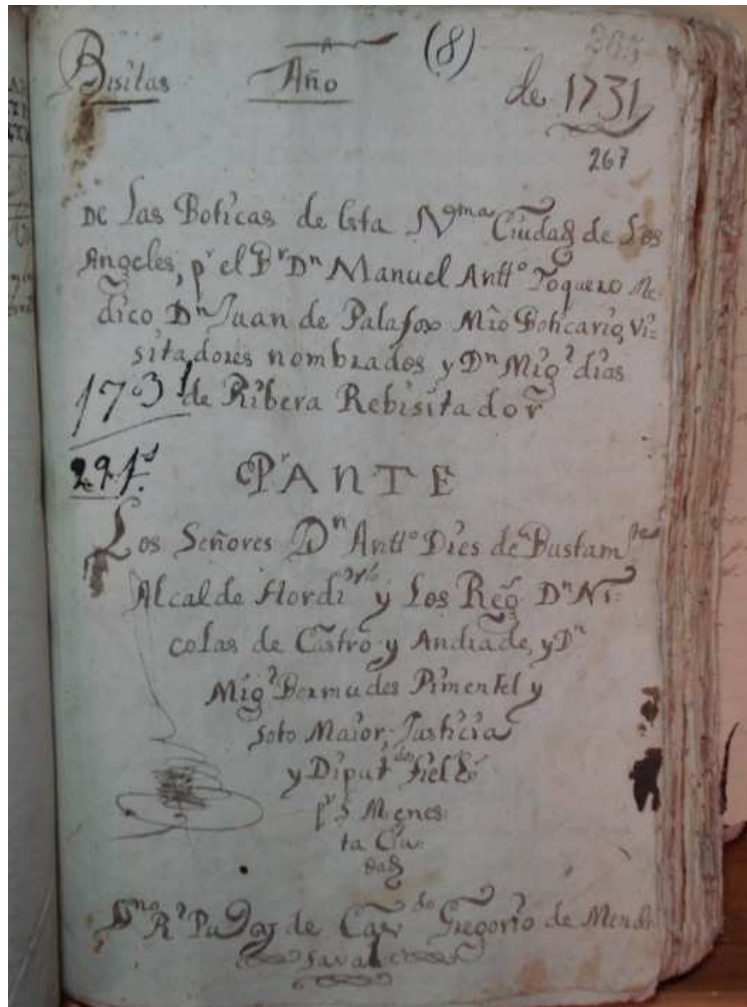 (8)
365
Bisitas Año de 1731
267
DE Las Boticas de Esta Nma Ciudad de Los
Angeles, pr el Br Dn Manuel Antto Toquero Me
dico Dn Juan de Palafox Mro Boticario, Vi=
sitadores nombrados y Dn Migl dias
1731 de Ribera Rebisitador
29 fs
Pr ANTE
Los Señores Dn Antto Dies de Bustamte
Alcalde Hordirio y Los Reg Dn Ni-
colas de Castro y Andrade, y Dn
Migl Bermudes Pimentel y
Soto Maior, Justicia
y Diputdos fiel
pr S M enes
ta Ciu
dad
Sno Rl Puco y de Cavdo Gregorio de Mendi